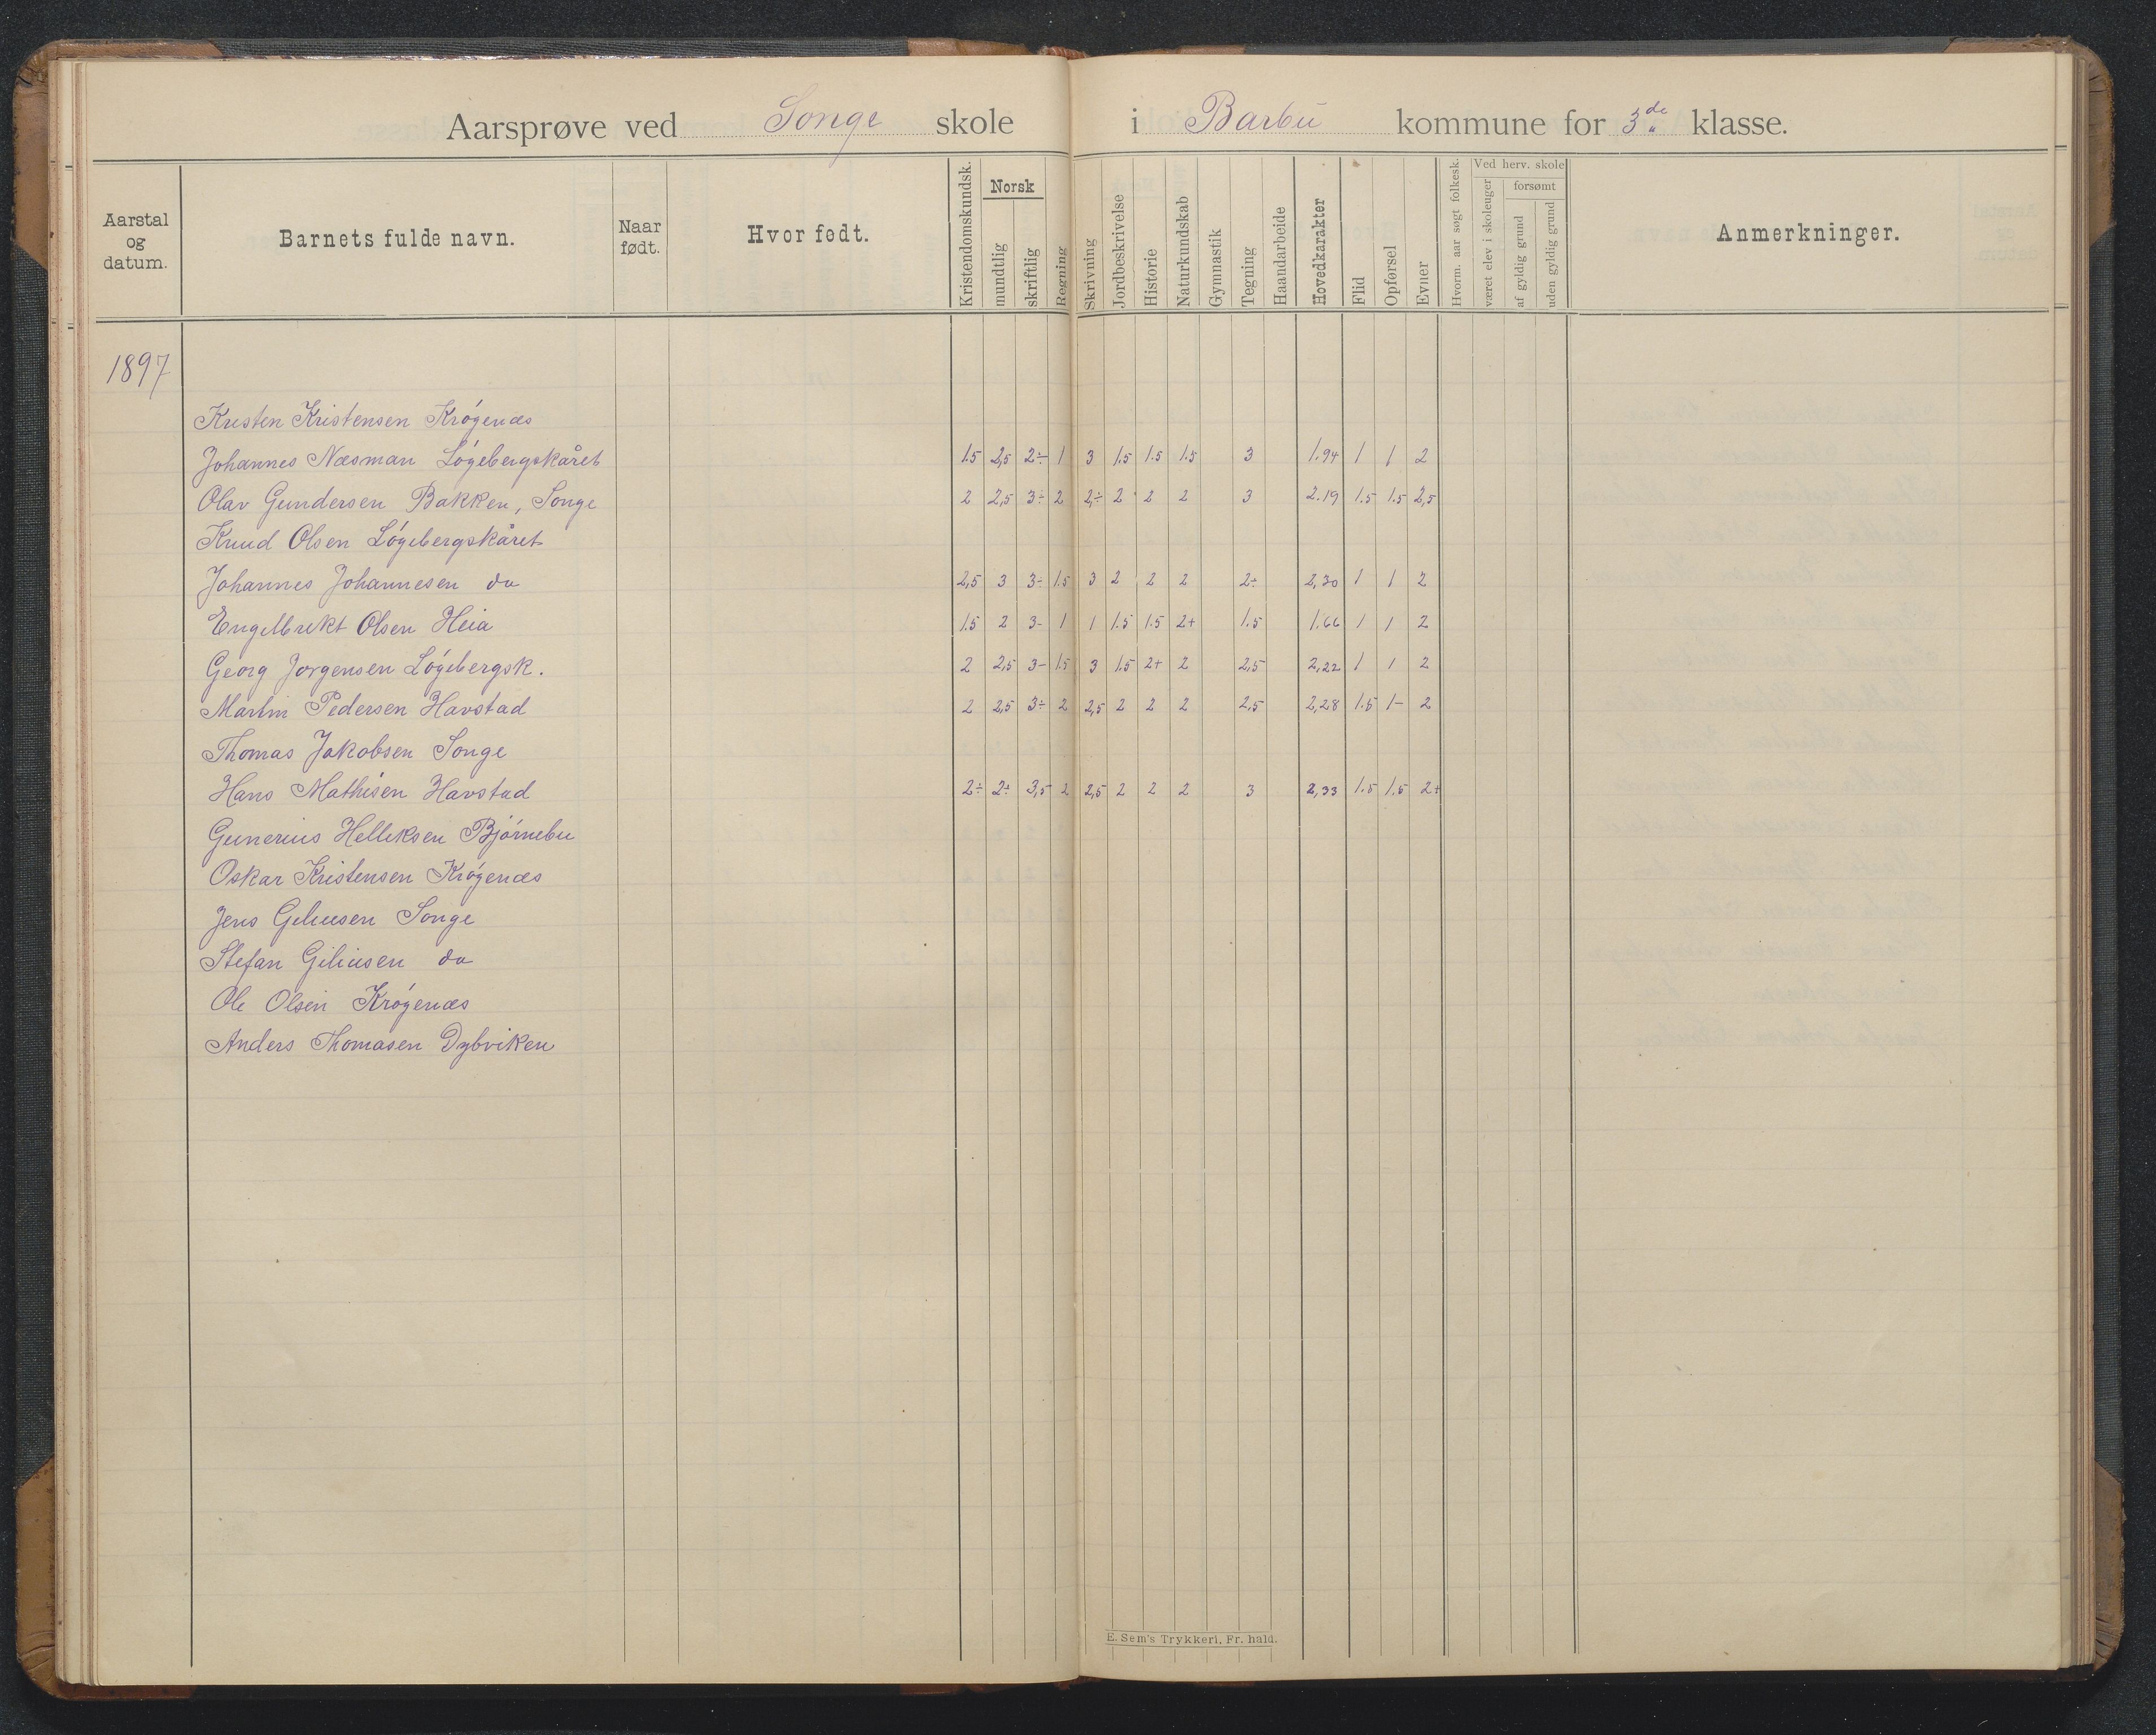 Aarsprøve ved Songe skole i Barbu kommune for 3de klasse.
Aarstal og datum.
Barnets fulde navn.
Naar født.
Hvor født.
Kristendomskundsk.
Norsk
mundtlig
skriftlig
Regning
Skrivning
Jordbeskrivelse
Historie
Naturkundskab
Gymnastik
Tegning
Haandarbeide
Hovedkarakter
Flid
Opførsel
Evner
Hvorm. aar søgt folkesk.
Ved herv. skole
været elev i skoleuger
forsømt
af gyldig grund
uden gyldig grund
Anmerkninger.
1897
Kristen Kristensen Krøgenæs
Johannes Næsman Løgebergskåret 1.5 2,5 2÷ 1 3 1.5 1.5 1.5 3 1.94 1 1 2
Olav Gundersen Bakken, Songe 2 2,5 3÷ 2 2÷ 2 2 2 3 2.19 1.5 1.5 2,5
Knud Olsen Løgebergskåret
Johannes Johannesen do 2,5 3 3÷ 1.5 3 2 2 2 2÷ 2,30 1 1 2
Engelbrekt Olsen Heia 1.5 2 3- 1 1 1.5 1.5 2+ 1.5 1.66 1 1 2
Georg Jorgensen Løgebergsk. 2 2,5 3- 1.5 3 1.5 2+ 2 2,5 2,22 1 1 2
Martin Pedersen Havstad 2 2,5 3÷ 2 2,5 2 2 2 2,5 2,28 1.5 1- 2
Thomas Jakobsen Songe
Hans Mathisen Havstad 2÷ 2÷ 3,5 2 2,5 2 2 2 3 2,33 1.5 1.5 2+
Gunerius Helleksen Bjørnebu
Oskar Kristensen Krøgenæs
Jens Giliusen Songe
Stefan Giliusen do
Ole Olsen Krøgenæs
Anders Thomasen Dybviken
E. Sem's Trykkeri, Fr. hald.